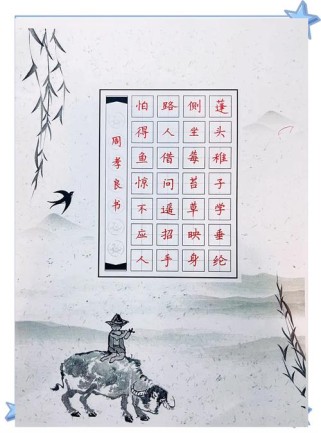 蓬头稚子学垂纶
侧坐莓苔草映身
路人借问遥招手
怕得鱼惊不应人
周孝良书